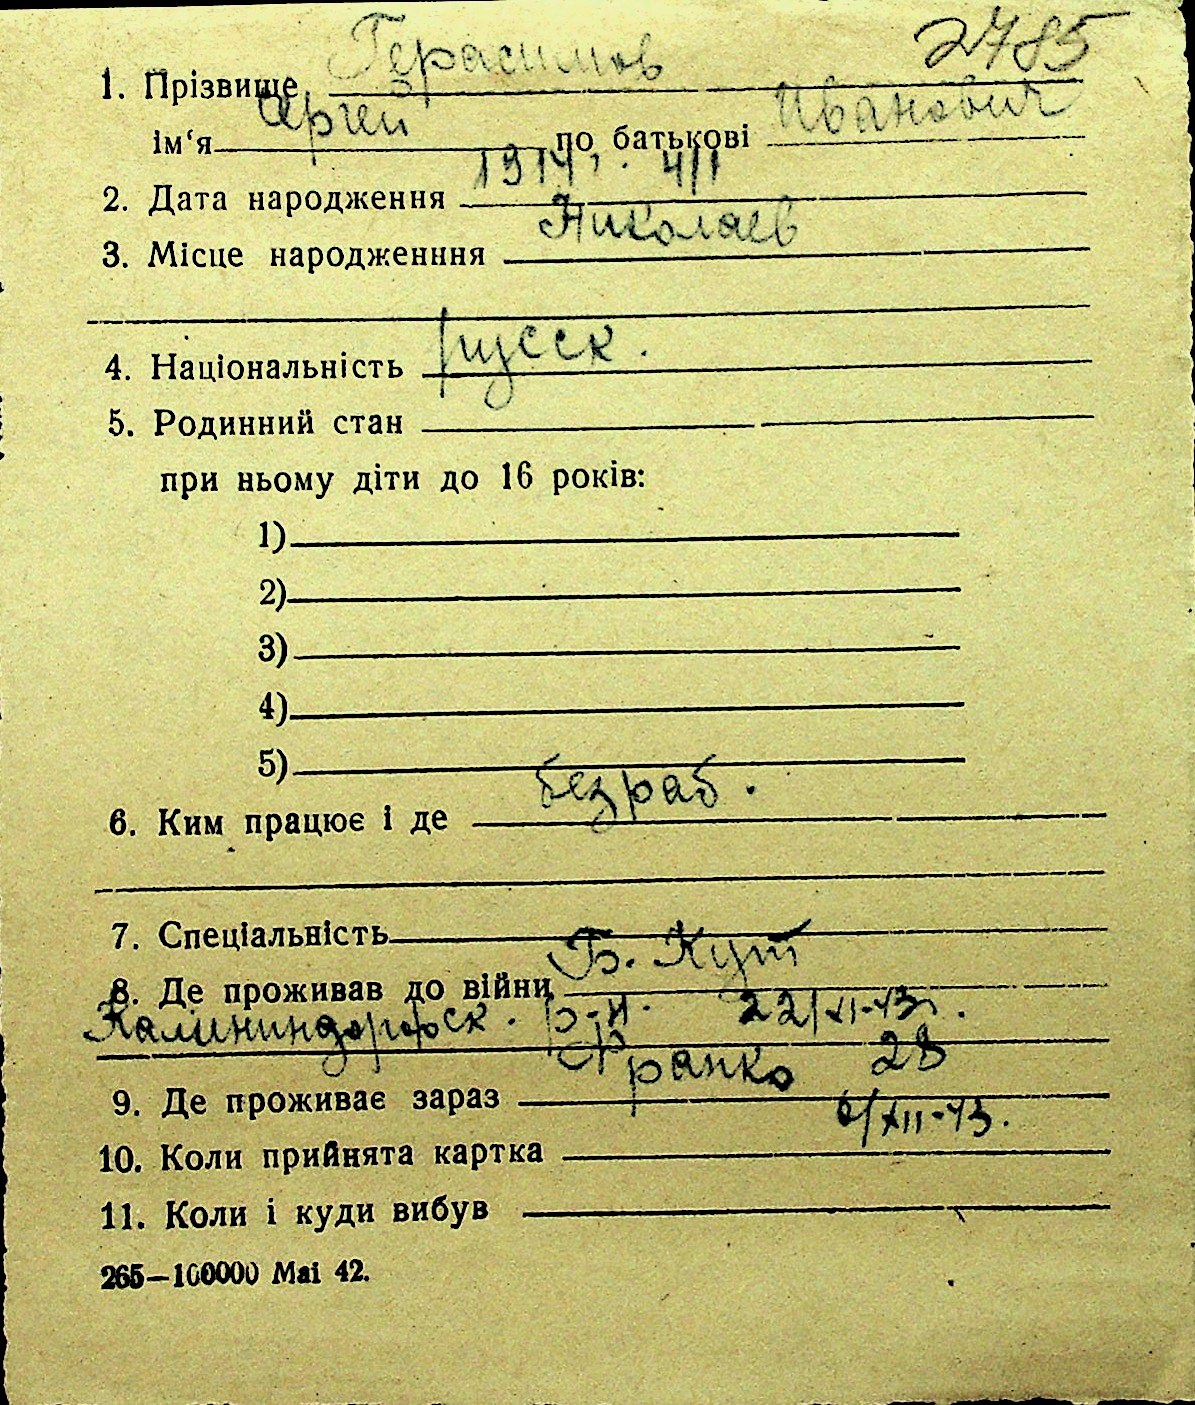 2785
1. Прізвище Герасимов
ім‘я Сергей по батькові Иванович
2. Дата народження 1914, 4/I
3. Місце народженння Николаев
4. Національність русск.
5. Родинний стан
при ньому діти до 16 років:
1)
2)
3)
4)
5)
6. Ким працює і де безраб.
7. Спеціальність
8. Де проживав до війни Б. Кут
Калининдорфск. р-н. 22/XI-43.
9. Де проживає зараз Франко 28
10. Коли прийнята картка 6/XII-43.
11. Коли і куди вибув
265—100000 Mai 42.